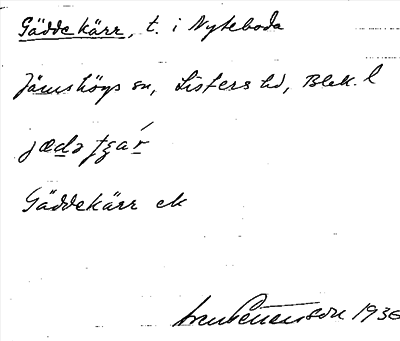 Gäddekärr, t. i Nyteboda
Jämshögs sn, Listers hd, Blek. l
Gäddekärr ek
1936